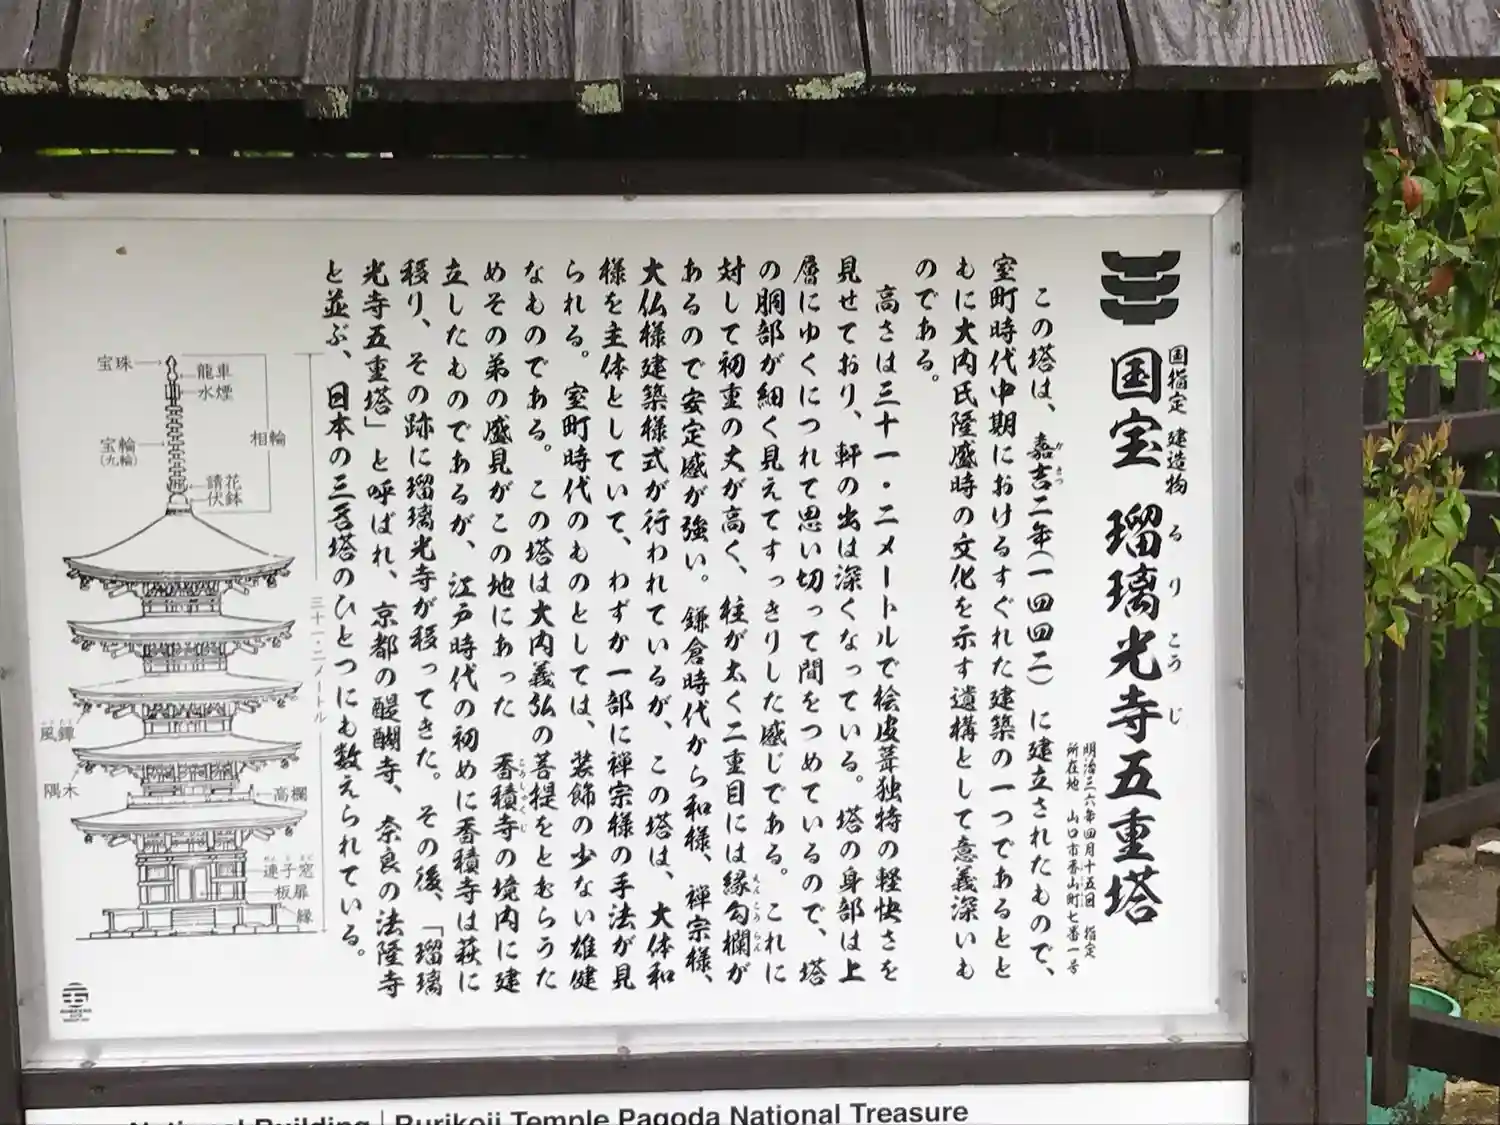 国指定 建造物
国宝 瑠璃光寺五重塔
る り こう じ
明治三六年四月十五日 指定
所在地 山口市香山町七番一号
この塔は、嘉吉二年(一四四二)に建立されたもので、
か きつ
室町時代中期におけるすぐれた建築の一つであるとと
もに大内氏隆盛時の文化を示す遺構として意義深いも
のである。
高さは三十一・二メートルで桧皮葺独特の軽快さを
見せており、軒の出は深くなっている。塔の身部は上
層にゆくにつれて思い切って間をつめているので、塔
の胴部が細く見えてすっきりした感じである。これに
対して初重の丈が高く、柱が太く二重目には縁勾欄が
えん こう らん
あるので安定感が強い。鎌倉時代から和様、禅宗様、
大仏様建築様式が行われているが、この塔は、大体和
様を主体としていて、わずか一部に禅宗様の手法が見
られる。室町時代のものとしては、装飾の少ない雄健
なものである。この塔は大内義弘の菩提をとむらうた
めその弟の盛見がこの地にあった 香積寺の境内に建
こうしゃくじ
立したものであるが、江戸時代の初めに香積寺は萩に
移り、その跡に瑠璃光寺が移ってきた。その後、「瑠璃
光寺五重塔」と呼ばれ、京都の醍醐寺、奈良の法隆寺
と並ぶ、日本の三名塔のひとつにも数えられている。
宝珠
龍車
水煙
相輪
宝輪
(九輪)
請花
伏鉢
三十一・二メートル
風鐸
隅木
高欄
連子窓
板扉
縁
National Building | Rurikoji Temple Pagoda National Treasure